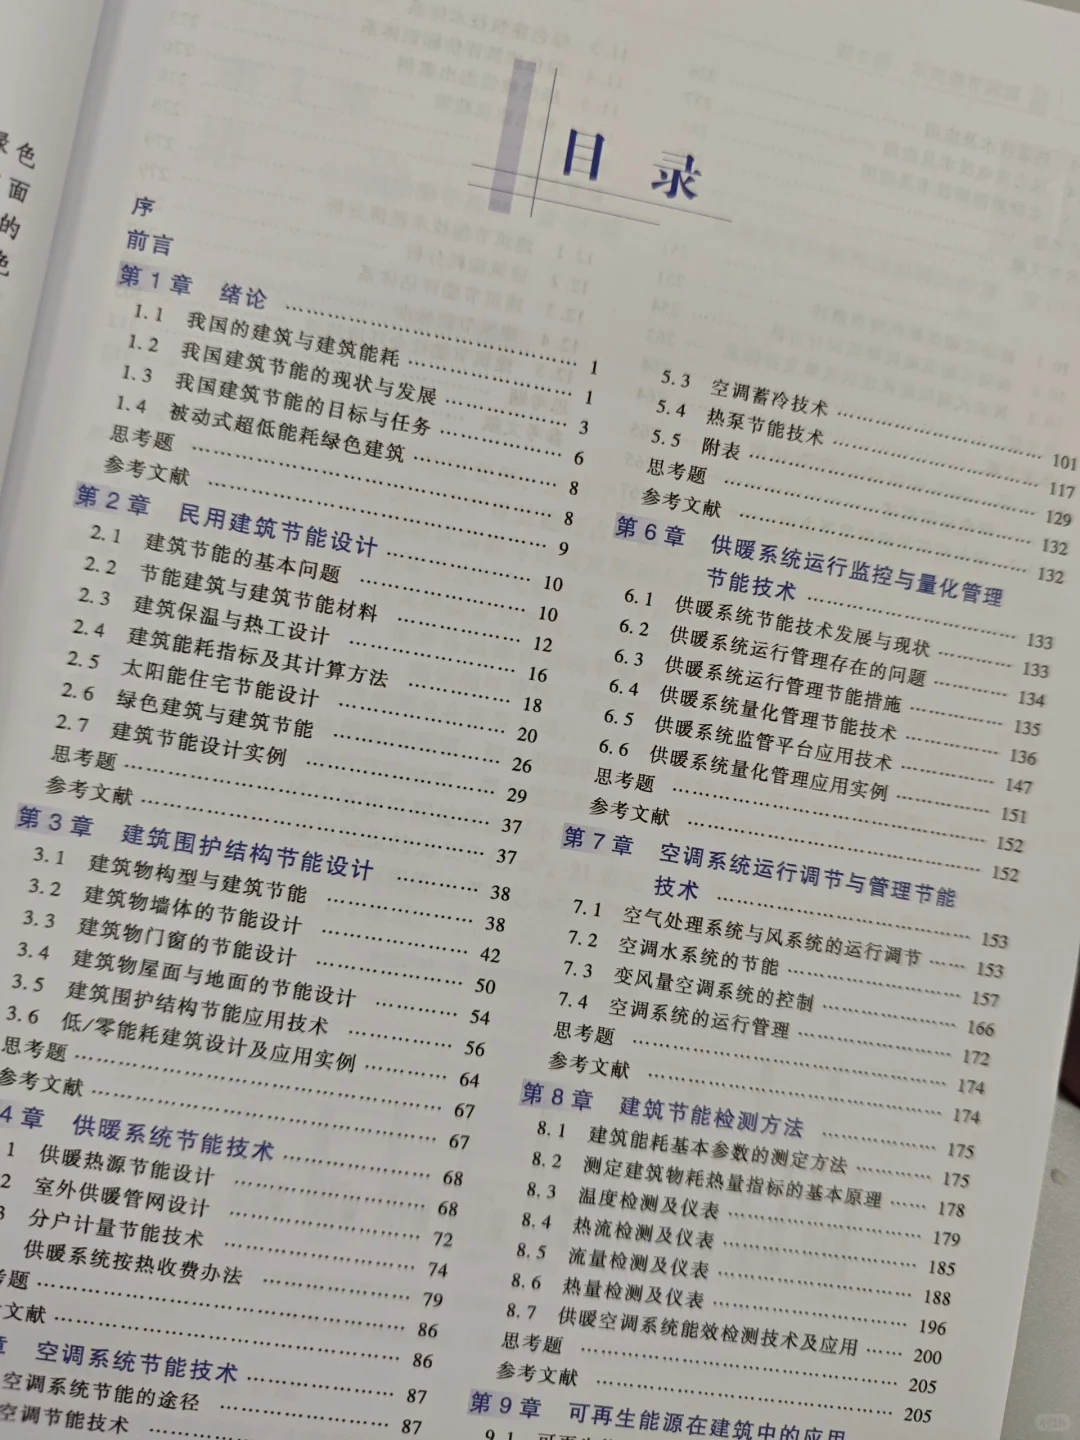 绿色
面
的
色
目 录
序
前言
第1章 绪论 …… 1
1.1 我国的建筑与建筑能耗 …… 1
1.2 我国建筑节能的现状与发展 …… 3
1.3 我国建筑节能的目标与任务 …… 6
1.4 被动式超低能耗绿色建筑 …… 8
思考题 …… 8
参考文献 …… 9
第2章 民用建筑节能设计 …… 10
2.1 建筑节能的基本问题 …… 10
2.2 节能建筑与建筑节能材料 …… 12
2.3 建筑保温与热工设计 …… 16
2.4 建筑能耗指标及其计算方法 …… 18
2.5 太阳能住宅节能设计 …… 20
2.6 绿色建筑与建筑节能 …… 26
2.7 建筑节能设计实例 …… 29
思考题 …… 37
参考文献 …… 37
第3章 建筑围护结构节能设计 …… 38
3.1 建筑物构型与建筑节能 …… 38
3.2 建筑物墙体的节能设计 …… 42
3.3 建筑物门窗的节能设计 …… 50
3.4 建筑物屋面与地面的节能设计 …… 54
3.5 建筑围护结构节能应用技术 …… 56
3.6 低/零能耗建筑设计及应用实例 …… 64
思考题 …… 67
参考文献 …… 67
4章 供暖系统节能技术 …… 68
1 供暖热源节能设计 …… 68
2 室外供暖管网设计 …… 72
3 分户计量节能技术 …… 74
供暖系统按热收费办法 …… 79
考题 …… 86
文献 …… 86
章 空调系统节能技术 …… 87
空调系统节能的途径 …… 87
空调节能技术
5.3 空调蓄冷技术 …… 101
5.4 热泵节能技术 …… 117
5.5 附表 …… 129
思考题 …… 132
参考文献 …… 132
第6章 供暖系统运行监控与量化管理
节能技术 …… 133
6.1 供暖系统节能技术发展与现状 …… 133
6.2 供暖系统运行管理存在的问题 …… 134
6.3 供暖系统运行管理节能措施 …… 135
6.4 供暖系统量化管理节能技术 …… 136
6.5 供暖系统监管平台应用技术 …… 147
6.6 供暖系统量化管理应用实例 …… 151
思考题 …… 152
参考文献 …… 152
第7章 空调系统运行调节与管理节能
技术 …… 153
7.1 空气处理系统与风系统的运行调节 …… 153
7.2 空调水系统的节能 …… 157
7.3 变风量空调系统的控制 …… 166
7.4 空调系统的运行管理 …… 172
思考题 …… 174
参考文献 …… 174
第8章 建筑节能检测方法 …… 175
8.1 建筑能耗基本参数的测定方法 …… 175
8.2 测定建筑物耗热量指标的基本原理 …… 178
8.3 温度检测及仪表 …… 179
8.4 热流检测及仪表 …… 185
8.5 流量检测及仪表 …… 188
8.6 热量检测及仪表 …… 196
8.7 供暖空调系统能效检测技术及应用 …… 200
思考题 …… 205
参考文献 …… 205
第9章 可再生能源在建筑中的应用
9.1 可再生